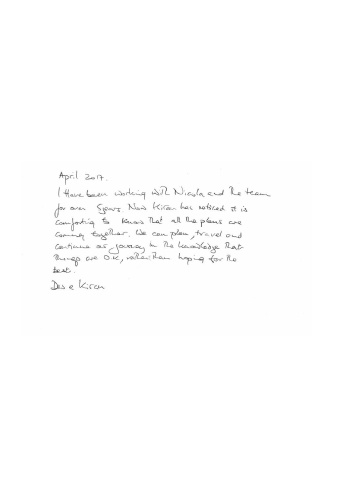 April 2017.
I have been working with Nicola and the team
for over 5 years. Now Kiran has retired it is
comforting to know that all the plans are
coming together. We can plan, travel and
continue our journey in the knowledge that
things are O.K, rather than hoping for the
best.
Des e Kiran